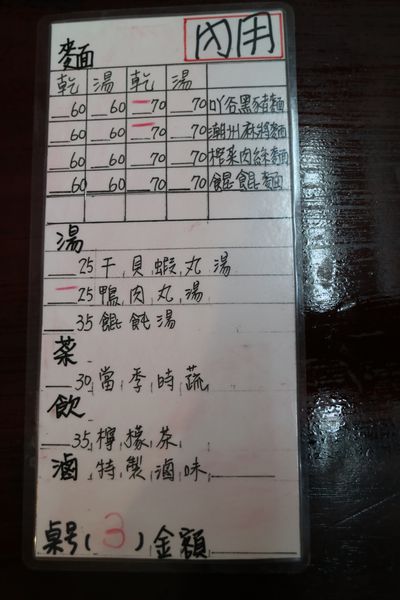 內用
麥面
乾 湯 乾 湯
60 60 70 70 吖谷黑豬麵
60 60 70 70 潮州麻將麵
60 60 70 70 榨菜肉絲麵
60 60 70 70 餛餛麵
湯
25 干貝蝦丸湯
25 鴨肉丸湯
35 餛飩湯
菜
30 當季時蔬
飲
35 檸檬茶
滷 特製滷味
桌号(3)金額